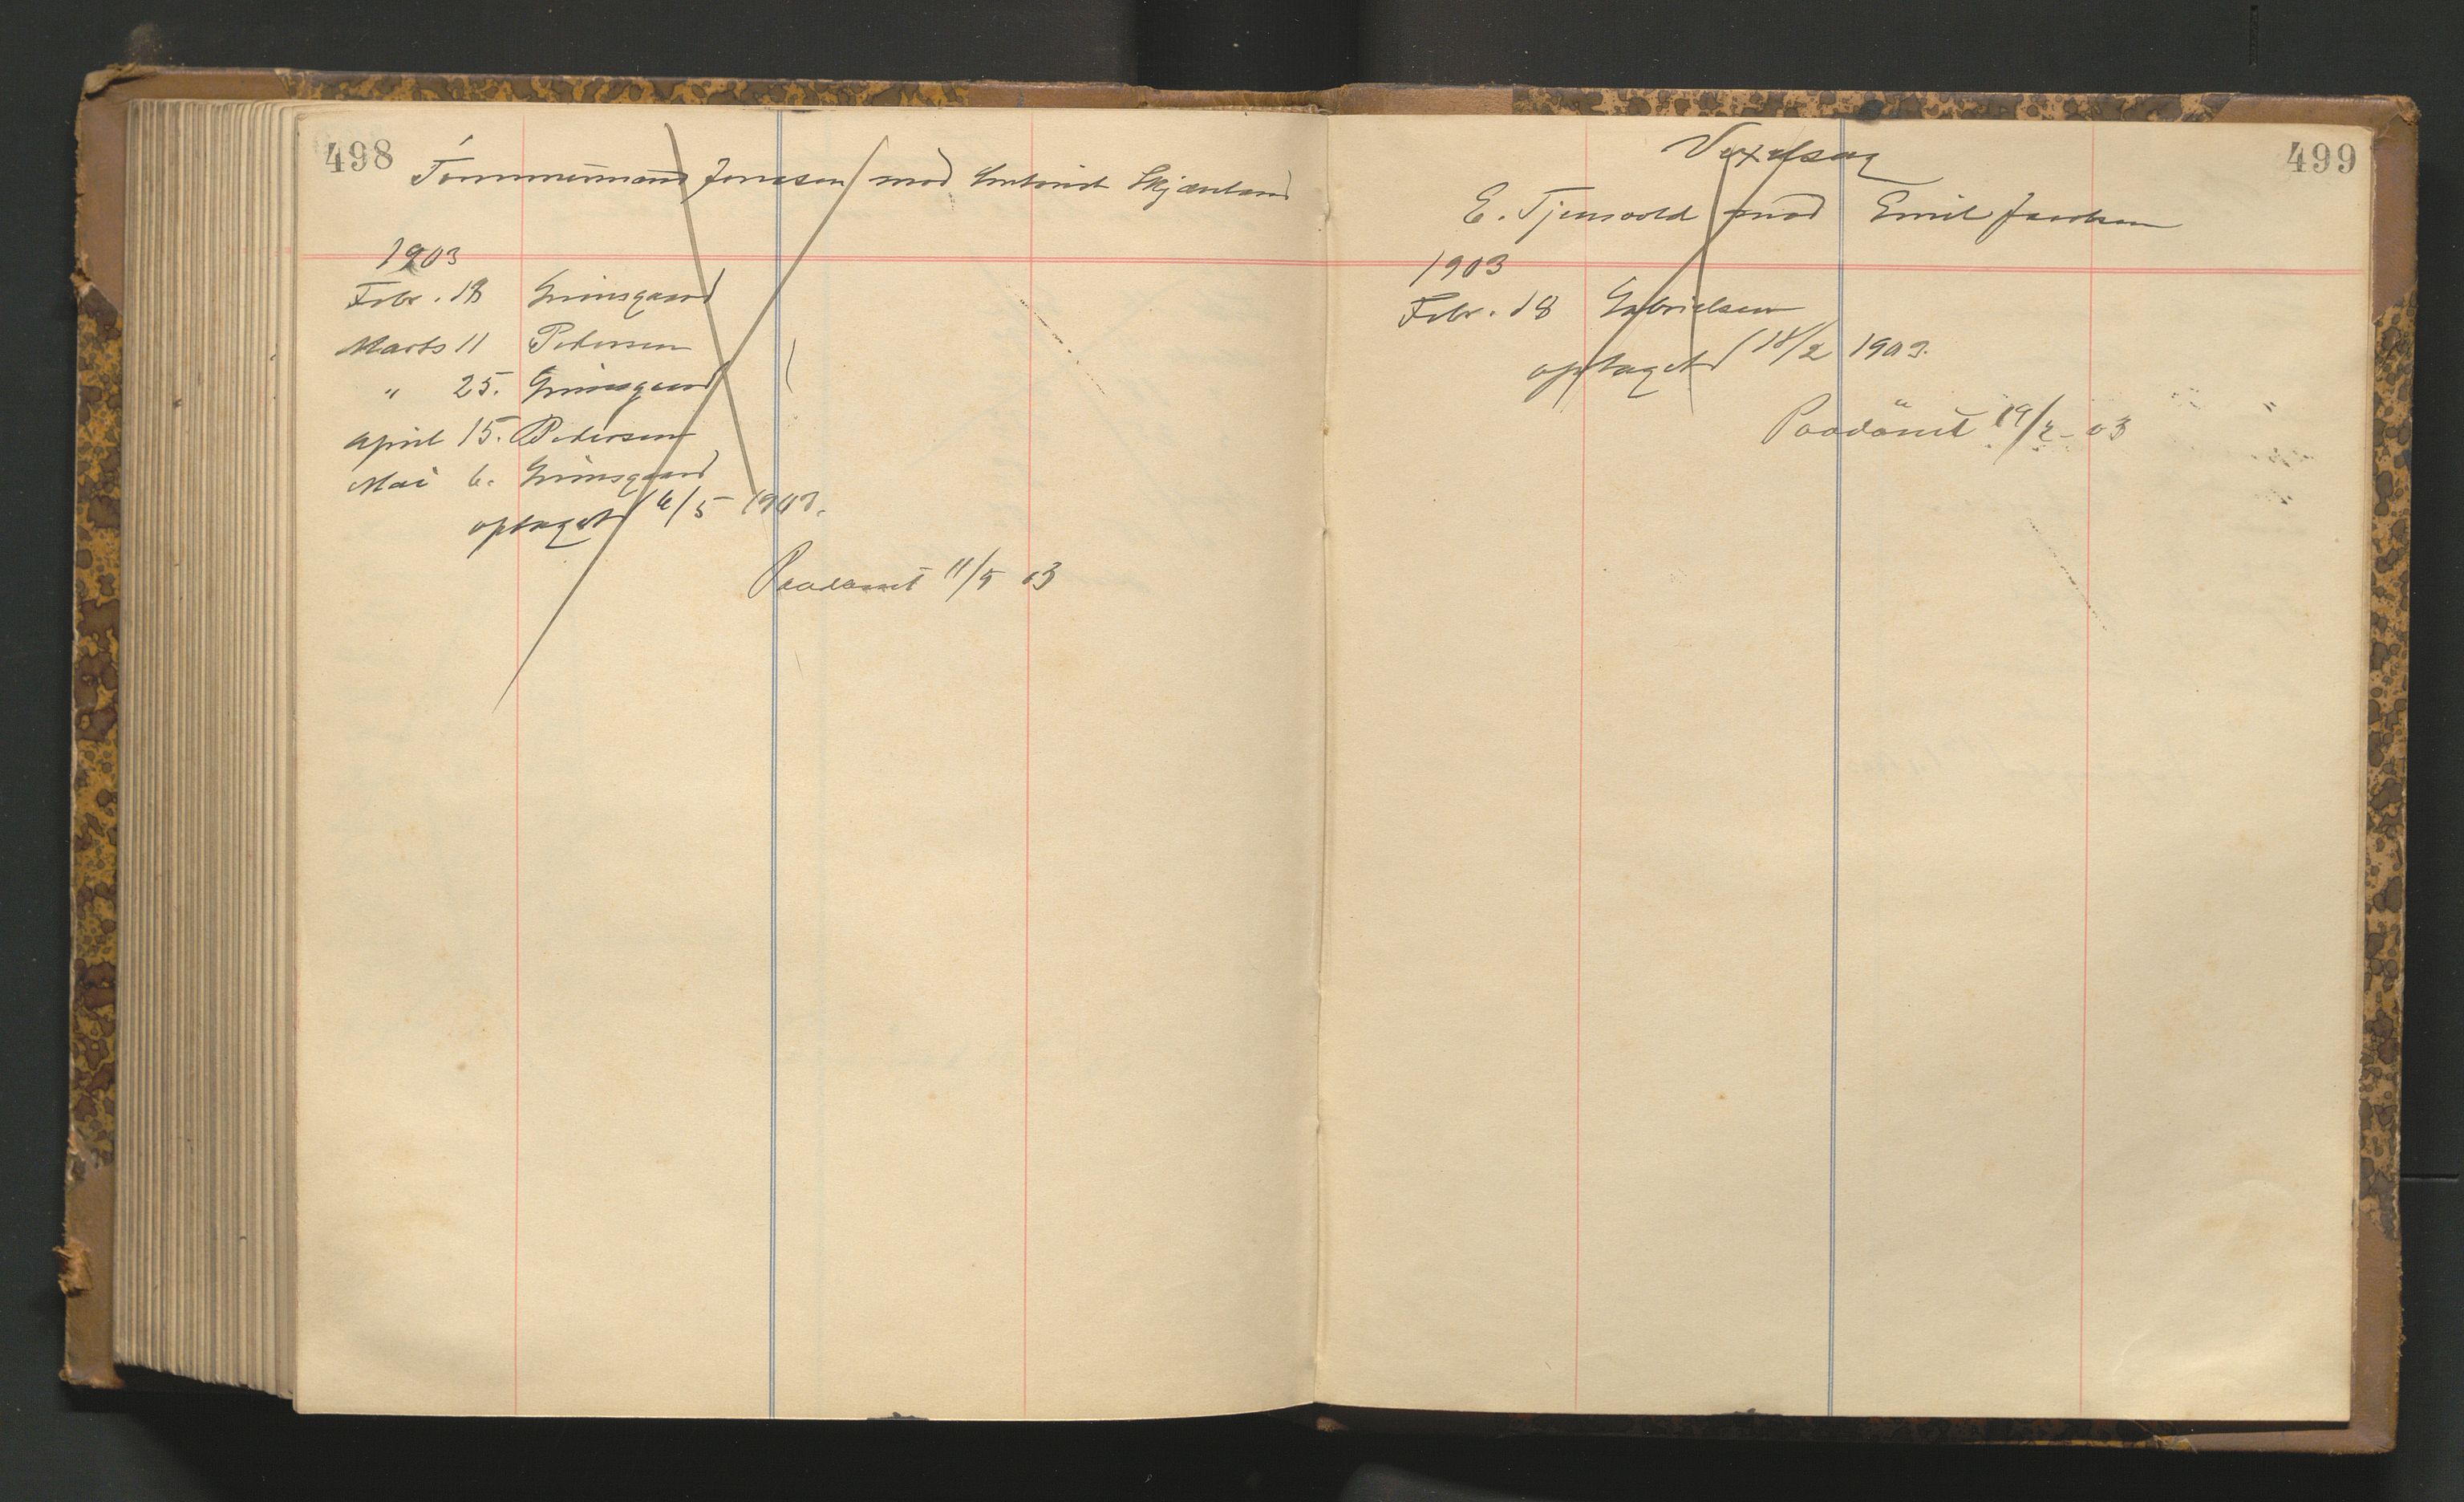 498
Tømmermand Jonassen mod Gabriel Skjænland
1903
Febr. 18 Grimsgaard
Marts 11 Petersen
" 25. Grimsgaard
April 15. Petersen
Mai 6. Grimsgaard
optaget 6/5 1903.
Paadømt 11/5 03
499
Vexelsag
E. Tjensvold mod Emil Jacobsen
1903
Febr. 18 Gabrielsen
optaget 18/2 1903.
Paadømt 19/2 - 03